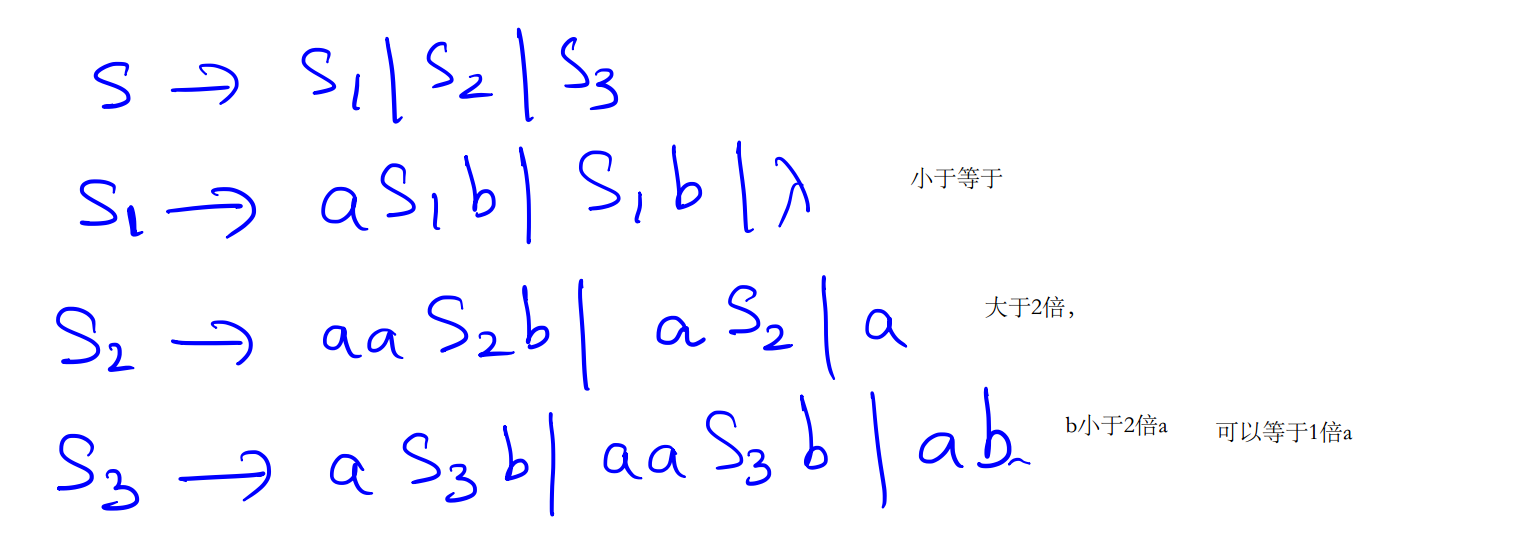 S → S₁ | S₂ | S₃
S₁ → aS₁b | S₁b | λ 小于等于
S₂ → aaS₂b | aS₂ | a 大于2倍，
S₃ → aS₃b | aaS₃b | ab b小于2倍a 可以等于1倍a